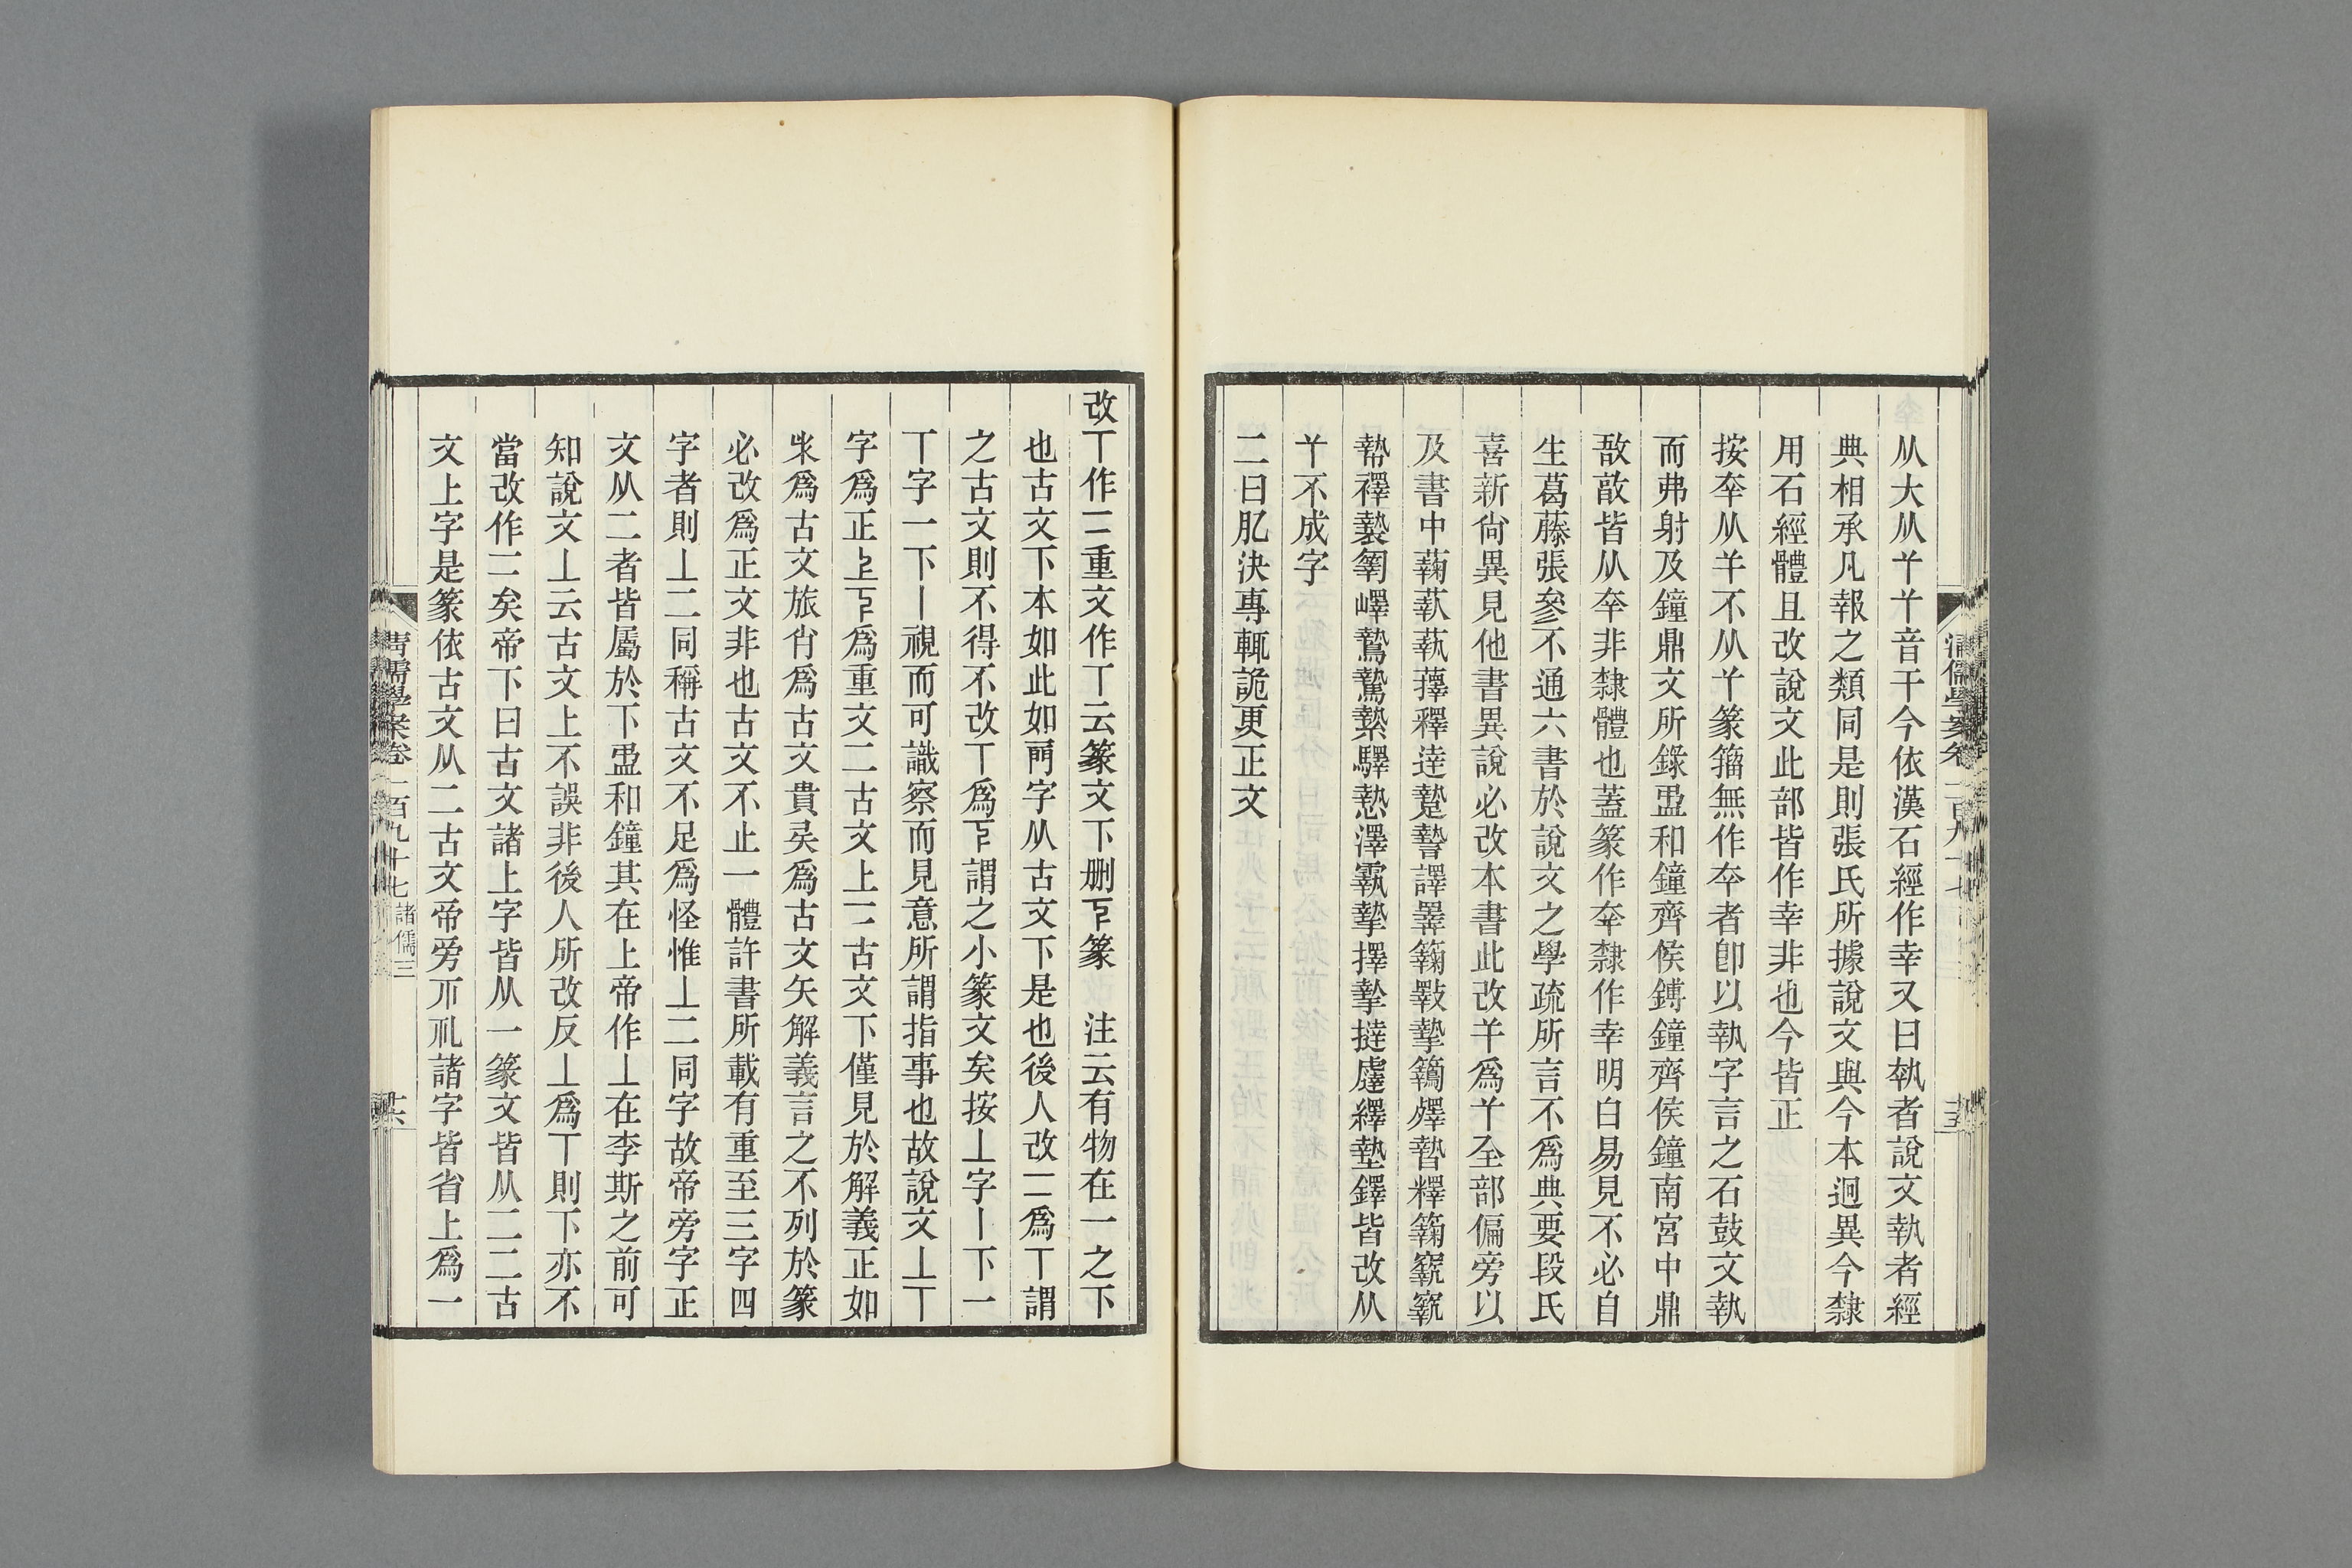 从大从𢆉𢆉音干今依漢石經作幸又曰執者說文執者經
典相承凡報之類同是則張氏所據說文與今本迥異今隸
用石經體且改說文此部皆作幸非也今皆正
按㚔从羊不从𢆉篆籀無作㚔者卽以執字言之石鼓文執
而弗射及鐘鼎文所錄盄和鐘齊侯鎛鐘齊侯鐘南宮中鼎
敔㪤皆从㚔非隸體也蓋篆作㚔隸作幸明白易見不必自
生葛藤張參不通六書於說文之學疏所言不爲典要段氏
喜新尙異見他書異說必改本書此改羊爲𢆉全部偏旁以
及書中
皆改从
𢆉不成字
二曰肊決專輒詭更正文
改丅作二重文作丅云篆文下刪𠄟篆 注云有物在一之下
也古文下本如此如㒳字从古文下是也後人改二爲丅謂
之古文則不得不改丅爲𠄟謂之小篆文矣按丄字丨下一
丅字一下丨視而可識察而見意所謂指事也故說文丄丅
字爲正𠄞𠄟爲重文二古文上二古文下僅見於解義正如
𣥐爲古文旅㕯爲古文貴㕚爲古文矢解義言之不列於篆
必改爲正文非也古文不止一體許書所載有重至三字四
字者則丄二同稱古文不足爲怪惟丄二同字故帝旁字正
文从二者皆屬於下盄和鐘其在上帝作丄在李斯之前可
知說文丄云古文上不誤非後人所改反丄爲丅則下亦不
當改作二矣帝下曰古文諸上字皆从一篆文皆从二二古
文上字是篆依古文从二古文帝旁示祀諸字皆省上爲一
清儒學案卷一百九十七 諸儒三